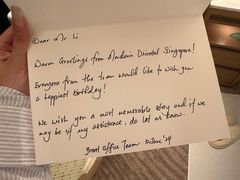 Dear Mr Li
Warm Greetings from Mandarin Oriental Singapore!
Everyone from the team would like to wish you
a happiest Birthday!
We wish you a most memorable stay and if we
may be of any assistance, do let us know.
Front Office Team